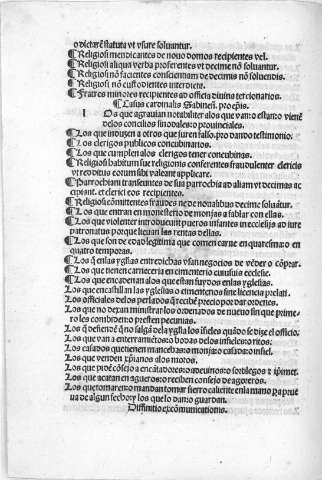 o dictarẽ statuta vt vsure soluantur.
¶ Religiosi mendicantes de nouo domos recipientes vel.
¶ Religiosi aliqua verba proferentes vt decime nõ soluantur.
¶ Religiosi nõ facientes conscienciam de decimis nõ soluendis.
¶ Religiosi nõ custodientes interdictũ.
¶ Fratres minores recipientes ad officia diuina terciarios.
¶ Casus cardinalis Sabineñ. pro ep̃is.
I Os que agrauian notabiliter alos que van o estan o vienẽ
delos concilios sinodales o prouinciales.
¶ Los que induzen a otros que juren falso. pro dando testimonio.
¶ Los clerigos publicos concubinarios.
¶ Los que cumplen alos clerigos tener concubinas.
¶ Religiosi habitum sue religionis conferentes fraudulenter clericis
vt redditus eorum sibi valeant applicare.
¶ Parrochiani transeuntes de sua parrochia ad aliam vt decimas ac
cipiant. et clerici eos recipientes.
¶ Religiosi cõmittentes fraudes ne de noualibus decime soluãtur.
¶ Los que entran en monesterio de monjas a fablar con ellas.
¶ Los que violenter introducunt pueros infantes in ecclesijs ad iure
patronatus por que lieuan las rentas dellas.
¶ Los que son de edad legitima que comen carne en quaresma o en
quatro temporas.
¶ Los q̃ en las yglias entredichas vsan negocios de vẽder o cõprar.
¶ Los que tienen carneceria en cimenterio cuiusuis ecclesie.
¶ Los que encadenan alos que estan fuydos en las yglesias.
Los que encastillan las yglesias o cimenterios sine licencia prelati.
Los officiales delos perlados q̃ recibẽ precio por dar ordenes.
Los que no dexan ministrar los ordenados de nueuo sin que prime-
ro les combiden o presten pecunias.
Los q̃ defienẽ q̃ no salgã dela yglia los ifieles quãdo se dize el officio.
Los que van a enterramiẽtos o bodas delos infieles o ritos.
Los casados que tienen mancebas o monja o casada o infiel.
Los que venden xp̃ianos alos moros.
Los
Los que acatan en agueros o reciben consejo de agoreros.
Los que tomaren o mandan tomar fierro caliente en la mano para prue
ua de algun fecho y los que lo dan o guardan.
Diffinitio excomunicationis.